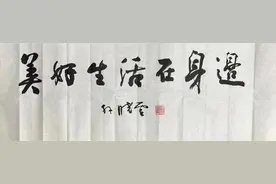 美好生活在身邊